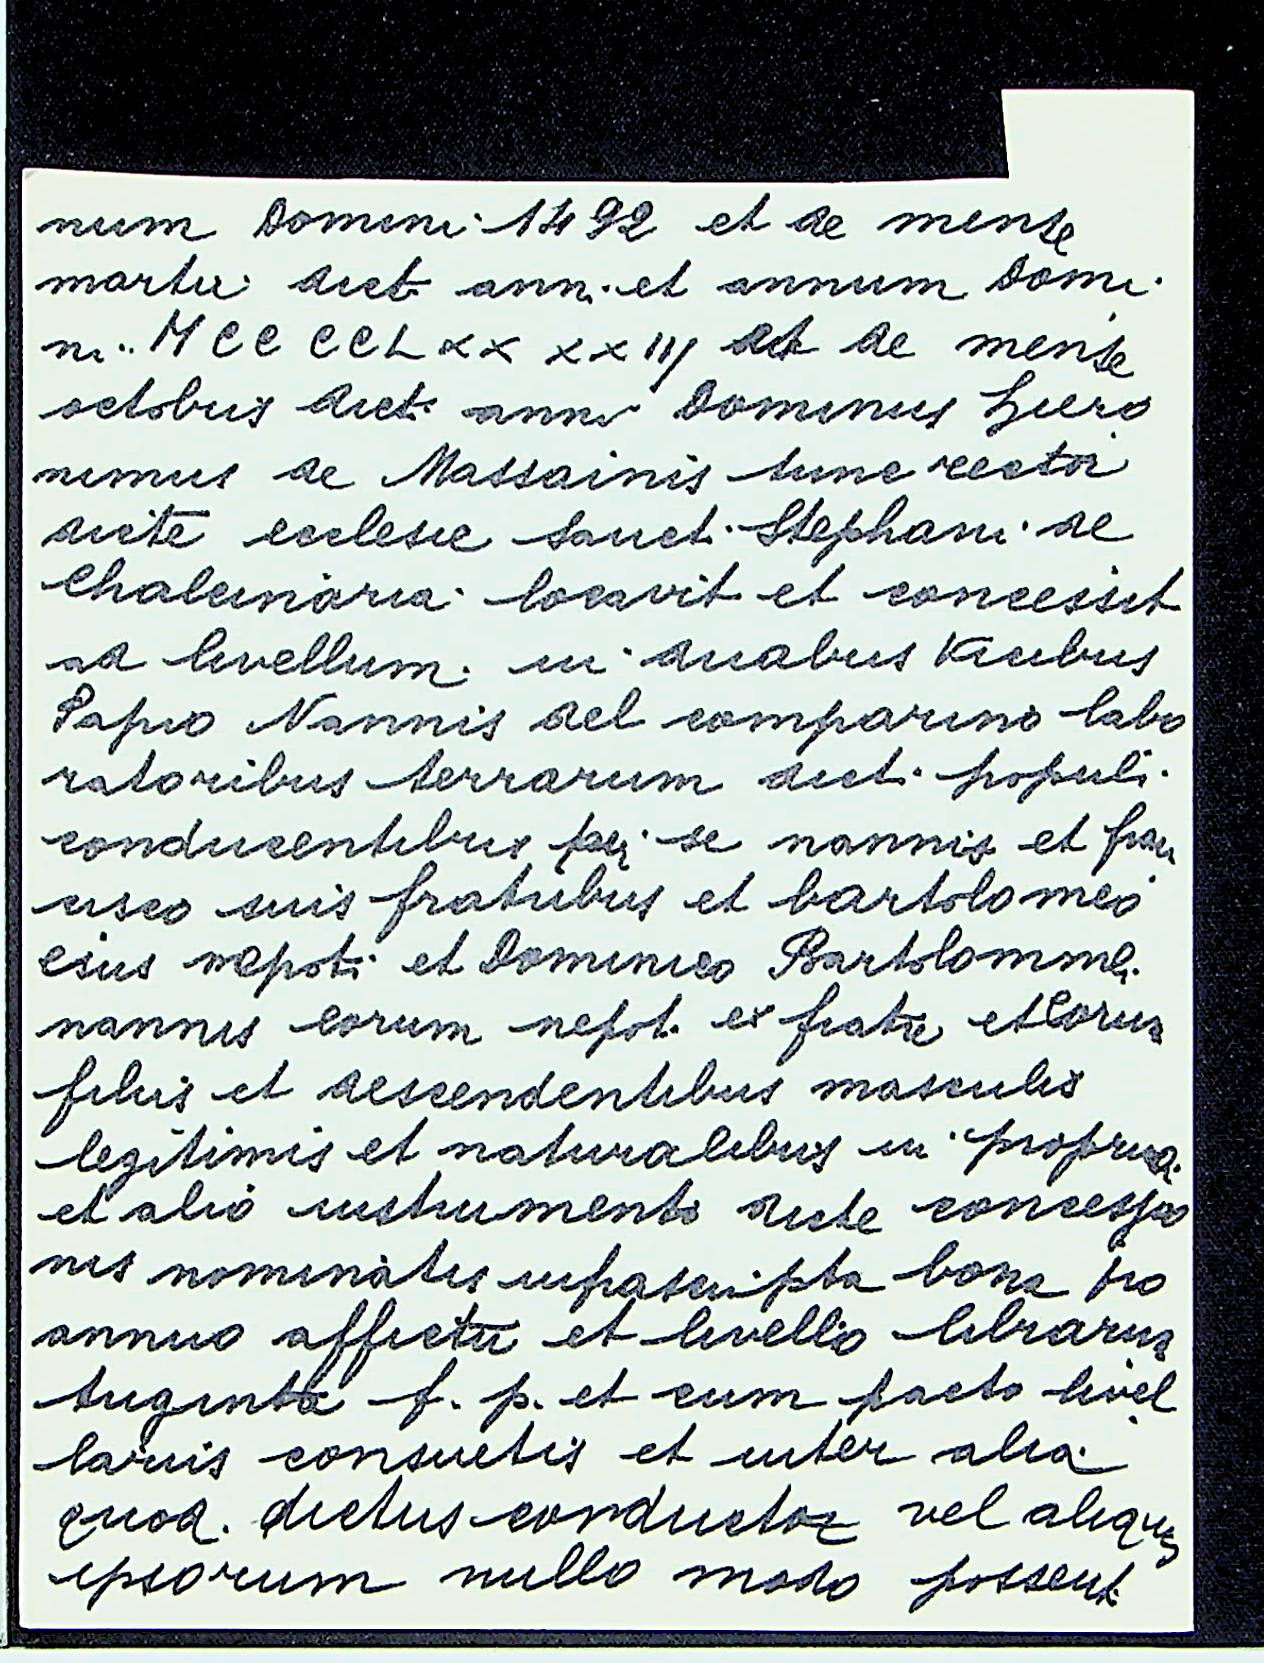 num Domini 1492 et de mense
martii dict. ann. et annum Domi-
ni. MCCCCCLXXXXIIJ et de mense
octobris dict. anni Dominus Hiero
nimus de Massainis tunc rector
dicte ecclesie sanct. Stephani de
Chalcinaria locavit et concessit
ad livellum in duabus vicibus
Papio Nannis del comparino labo
ratoribus terrarum dict. populi
conducentibus per se nannis et fran
cisco suis fratribus et bartolomeo
eius nepoti et Dominico Bartolommei
nannis eorum nepot. ex fratre et eorum
filiis et descendentibus masculis
legitimis et naturalibus in propria
et alio instrumento dicte concessio
nis nominatis infrascripta bona pro
annuo affictu et livello librarum
triginta f. p. et cum pacto livel
lariis consuetis et inter alia
quod. dictus conductor vel aliquis
ipsorum nullo modo possent